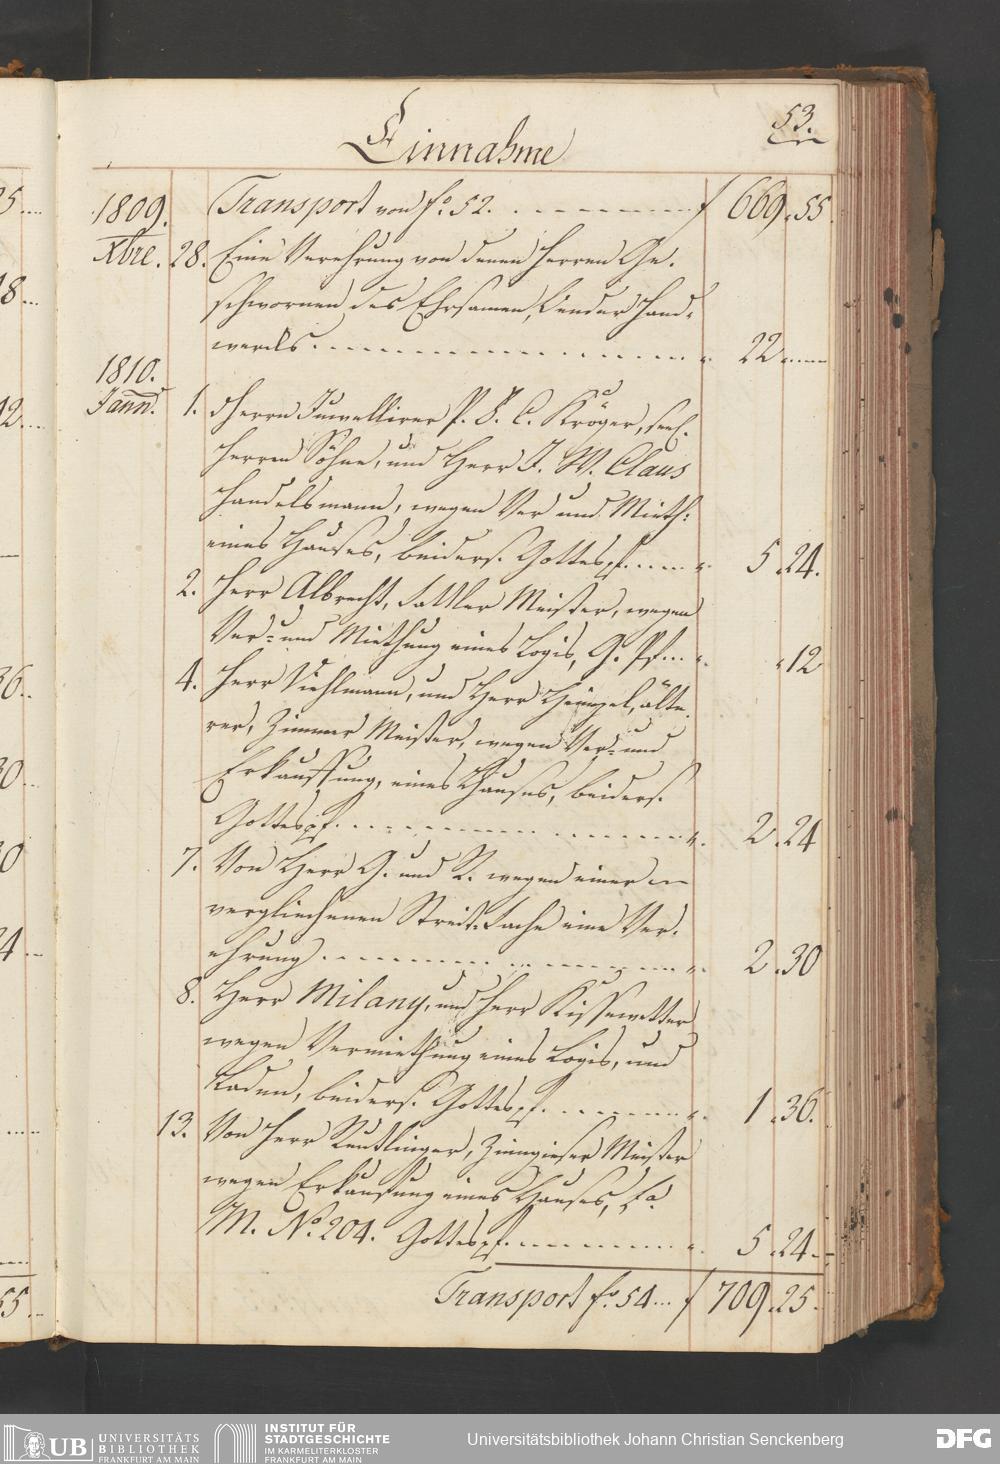 53.
Einnahme
1809. Transport von fo. 52. f 669.55.
Xbre. 28. Eine Verehrung von denen Herren Ge-
schwornen des Ehrsamen Bender Hand-
wercks 22
1810.
Jann. 1. Herrn Juwellirer P. F. C. Kröger, seel.
Herren Söhne, und Herr J. W. Claus
Handelsmann, wegen Ver und Mieth:
eines Hauses, beiders. Gottespf. 5.24.
2. Herr Albrecht, Sattler Meister, wegen
Ver- und Miethung eines Logis, G. Pf. 12
4. Herr Diehlmann, und Herr älte
rer, Zimmer Meister, wegen Ver- und
Erkauffung, eines Hauses, beiders.
Gottespf. 2.24
7. Von Herr G. und R. wegen einer
verglichenen Streit-Sache eine Ver-
ehrung 2.30
8. Herr Milany, und Herr Kissewetter
wegen Vermiethung eines Logis, und
Laden, beiders. Gottespf. 1.36.
13. Von Herr Reutlinger, Zinngieser Meister
wegen Erkaufung eines Hauses,
M. No. 204. Gottespf. 5.24.
Transport fo. 54 f 709.25.
UB UNIVERSITÄTS
BIBLIOTHEK
FRANKFURT AM MAIN
INSTITUT FÜR
STADTGESCHICHTE
IM KARMELITERKLOSTER
FRANKFURT AM MAIN
Universitätsbibliothek Johann Christian Senckenberg
DFG